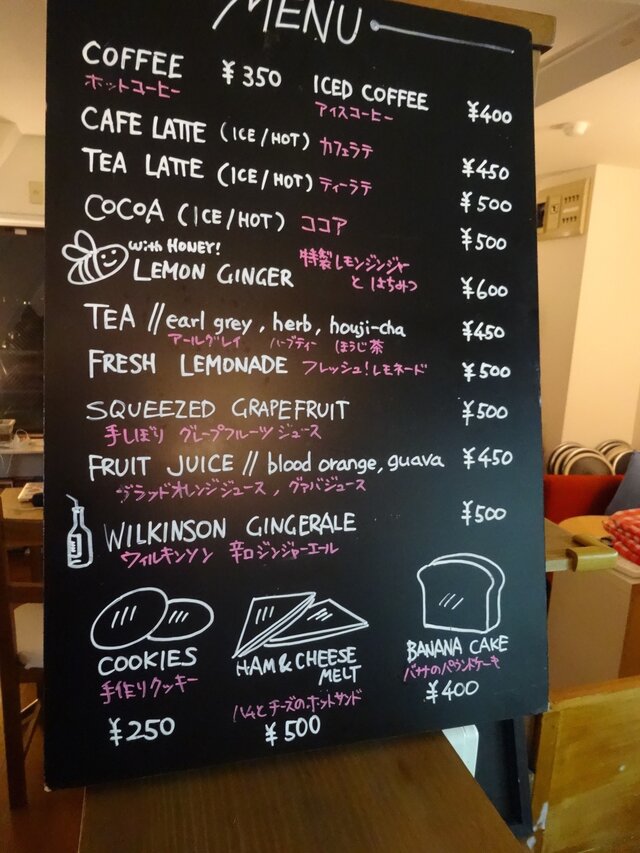 MENU
COFFEE ¥350 ICED COFFEE ¥400
ホットコーヒー アイスコーヒー
CAFE LATTE (ICE/HOT) カフェラテ ¥450
TEA LATTE (ICE/HOT) ティーラテ ¥500
COCOA (ICE/HOT) ココア ¥500
with HONEY!
LEMON GINGER 特製レモンジンジャー ¥600
と はちみつ
TEA // earl grey, herb, houji-cha ¥450
アールグレイ ハーブティー ほうじ茶
FRESH LEMONADE フレッシュ!レモネード ¥500
SQUEEZED GRAPEFRUIT ¥500
手しぼり グレープフルーツジュース
FRUIT JUICE // blood orange, guava ¥450
ブラッドオレンジジュース, グァバジュース
WILKINSON GINGERALE ¥500
ウィルキンソン 辛口ジンジャーエール
COOKIES
手作りクッキー
¥250
HAM & CHEESE
MELT
ハムとチーズのホットサンド
¥500
BANANA CAKE
バナナのパウンドケーキ
¥400